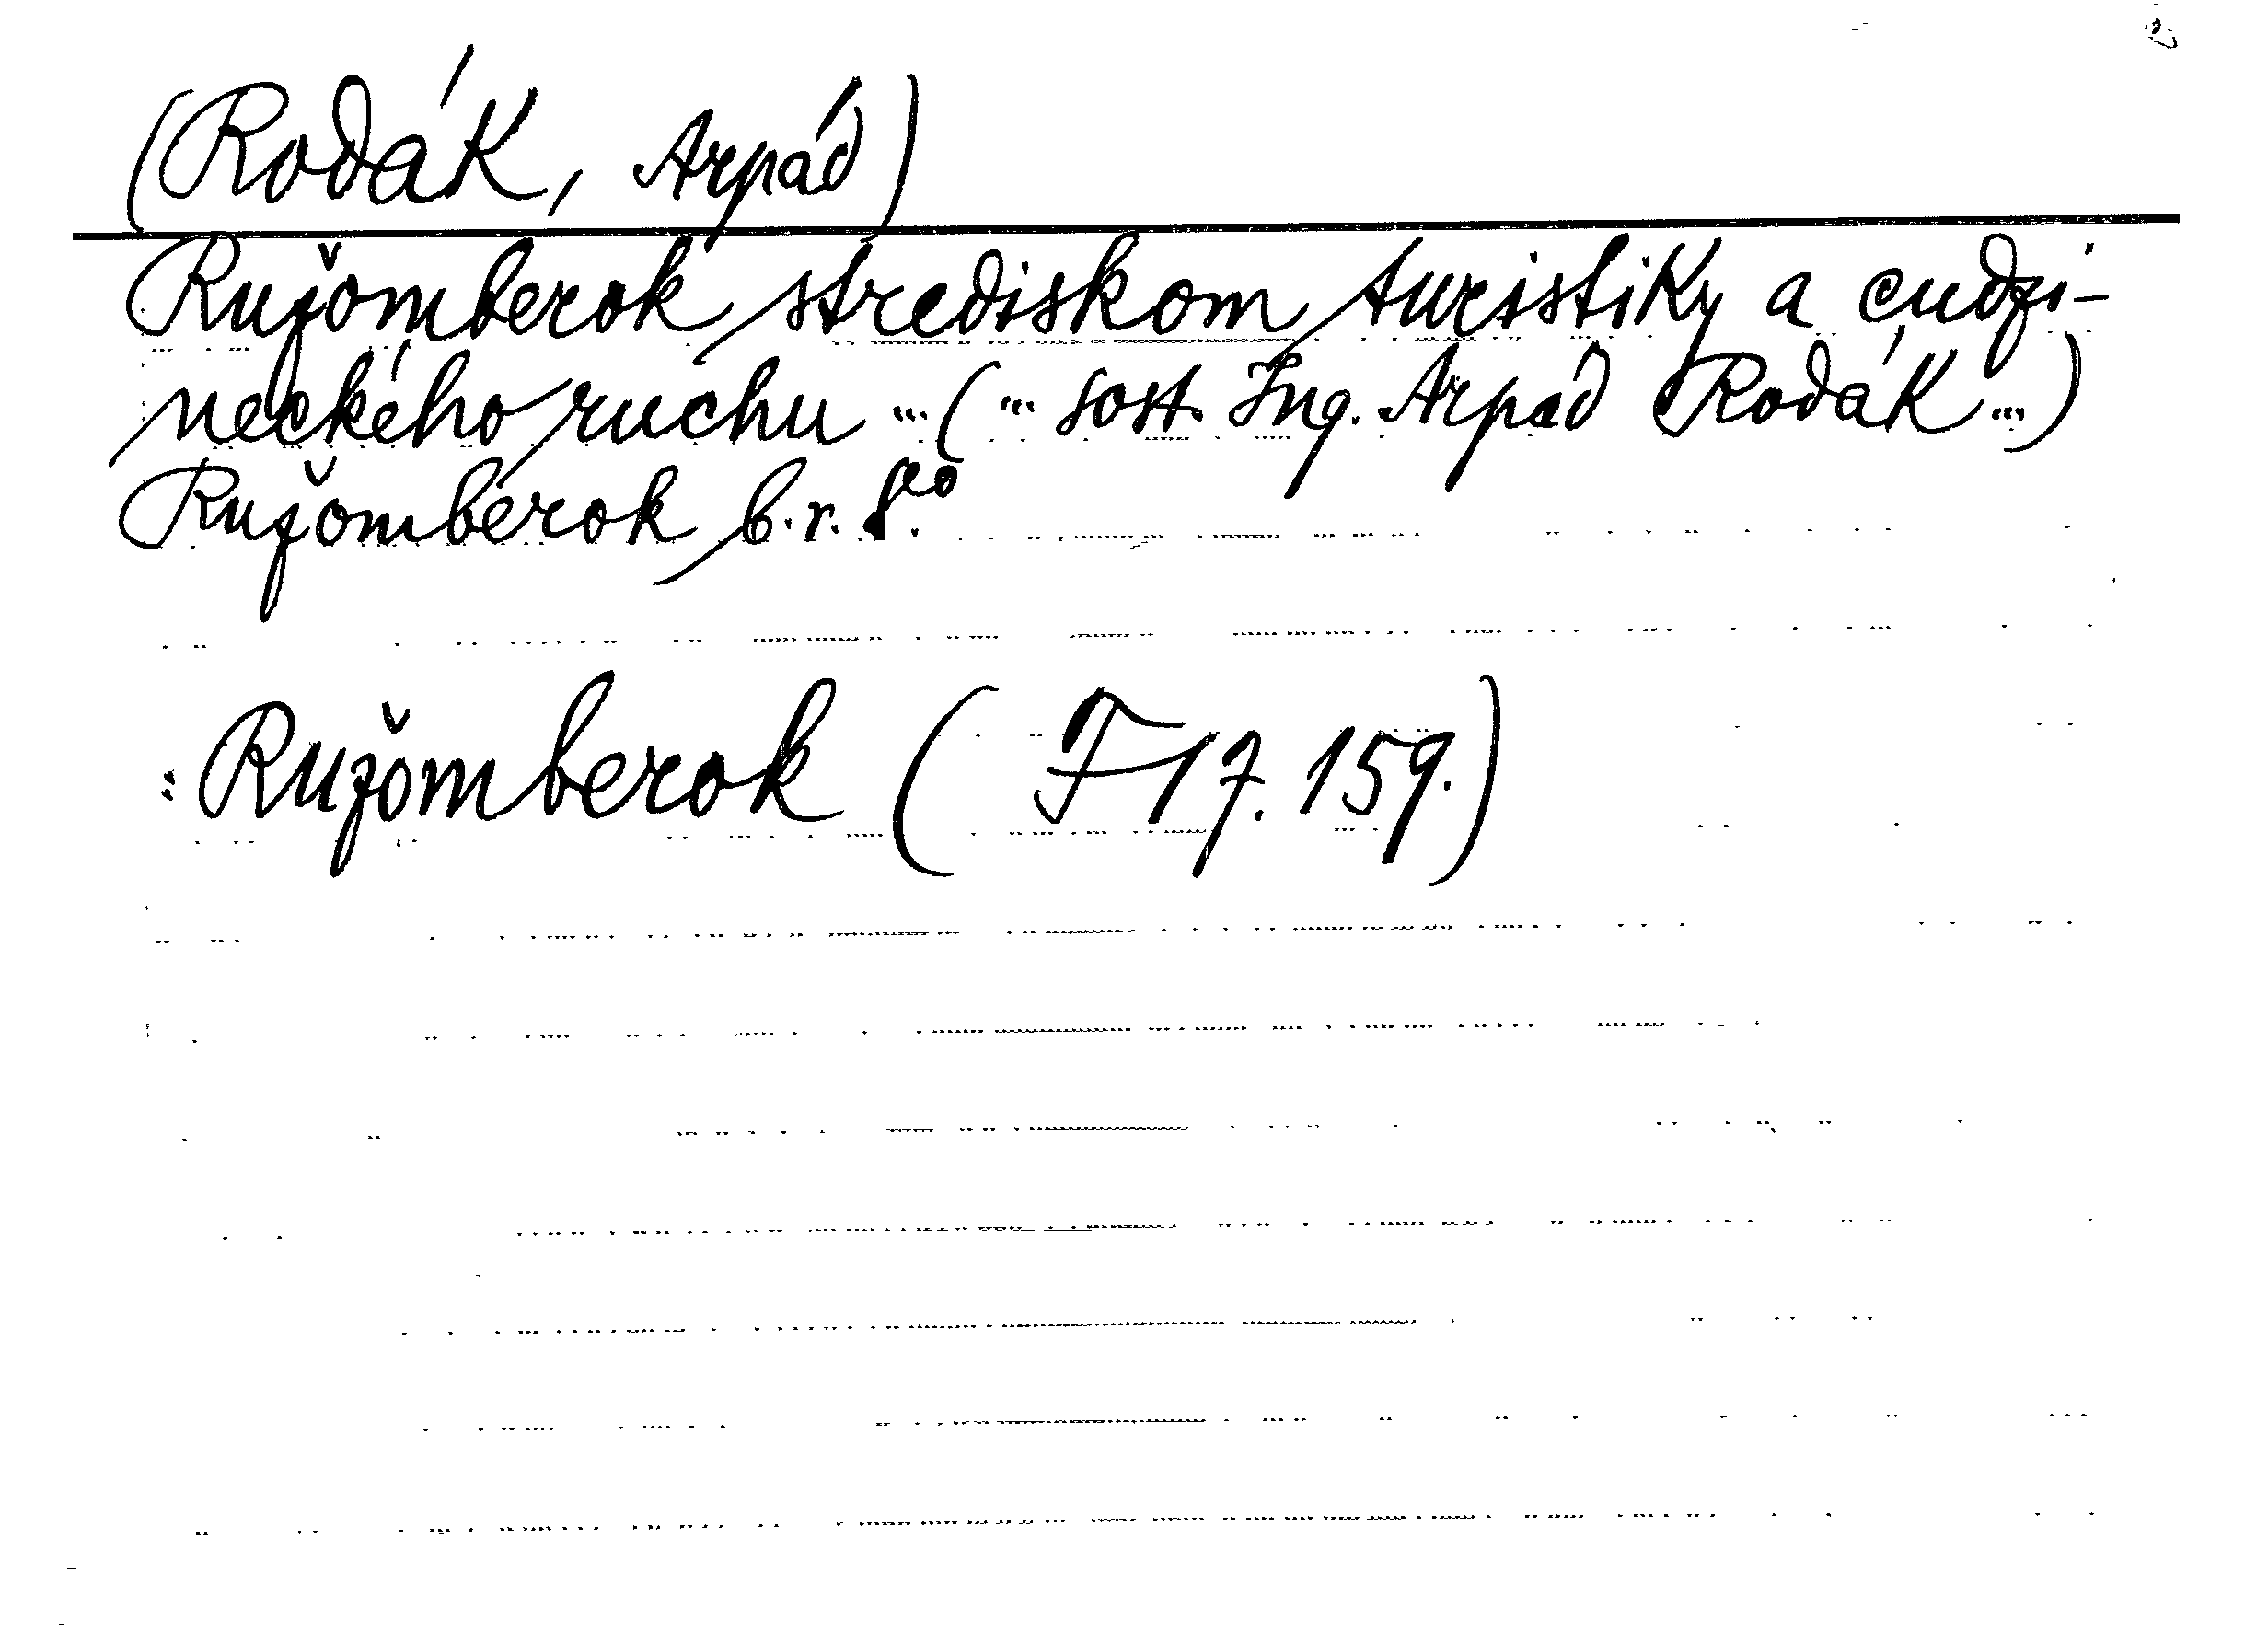 (Rodák, Arpád)
Ružomberok strediskom turistiky a cudzi-
neckého ruchu ... ( ... sost. Ing. Arpád Rodák ... )
Ružomberok b.r. 8°
: Ružomberok ( F 17. 159. )